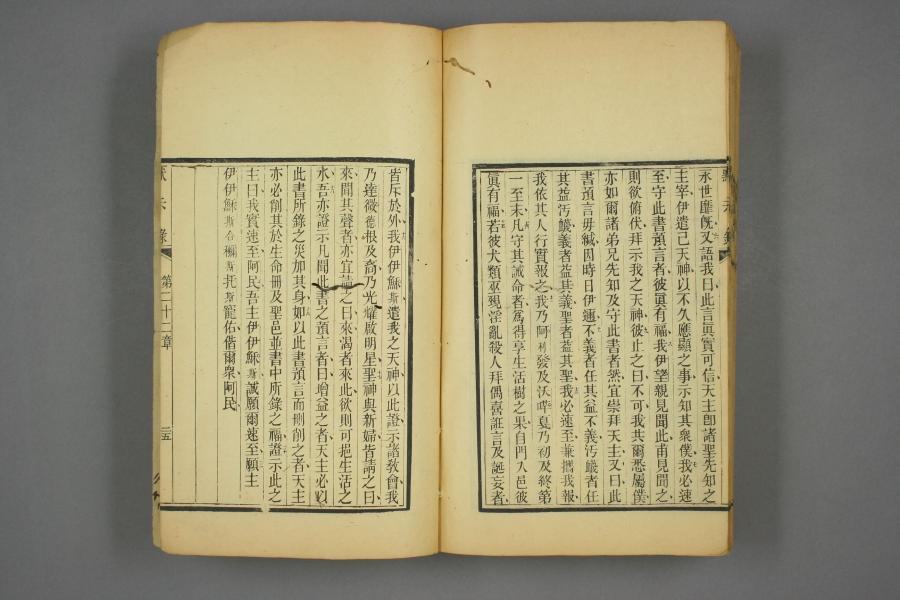 永世靡旣又語我曰此言眞實可信天主卽諸聖先知之
主宰伊遣己天神以不久應顯之事示知其衆僕我必速
至守此書預言者彼眞有福我伊望親見聞此甫見聞之
則欲俯伏拜示我之天神彼止之曰不可我共爾悉屬僕
亦如爾諸弟兄先知及守此書者然宜崇拜天主又曰此
書預言毋緘因時日伊邇不義者任其益不義汚衊者任
其益汚衊義者益其義聖者益其聖我必速至兼攜我報
我依其人行實報之我乃阿利發及沃嘩戛乃初及終第
一至末凡守其誡命者爲得享生活樹之果自門入邑彼
眞有福若彼犬類巫覡淫亂殺人拜偶喜誑言及誕妄者
皆斥於外我伊伊穌斯遣我之天神以此證示諸敎會我
乃達微德根及裔乃光燿啟明星聖神與新婦皆請之曰
來聞其聲者亦宜請之曰來渴者來此欲則可挹生活之
水吾亦證示凡聞此書之預言者曰增益之者天主必以
此書所錄之災加其身如以此書預言而刪削之者天主
亦必削其於生命冊及聖邑並書中所錄之福證示此之
主曰我實速至阿民吾主伊伊穌斯誠願爾速至願主
伊伊穌斯合穪斯托斯寵佑偕爾衆阿民
示錄
第二十二章